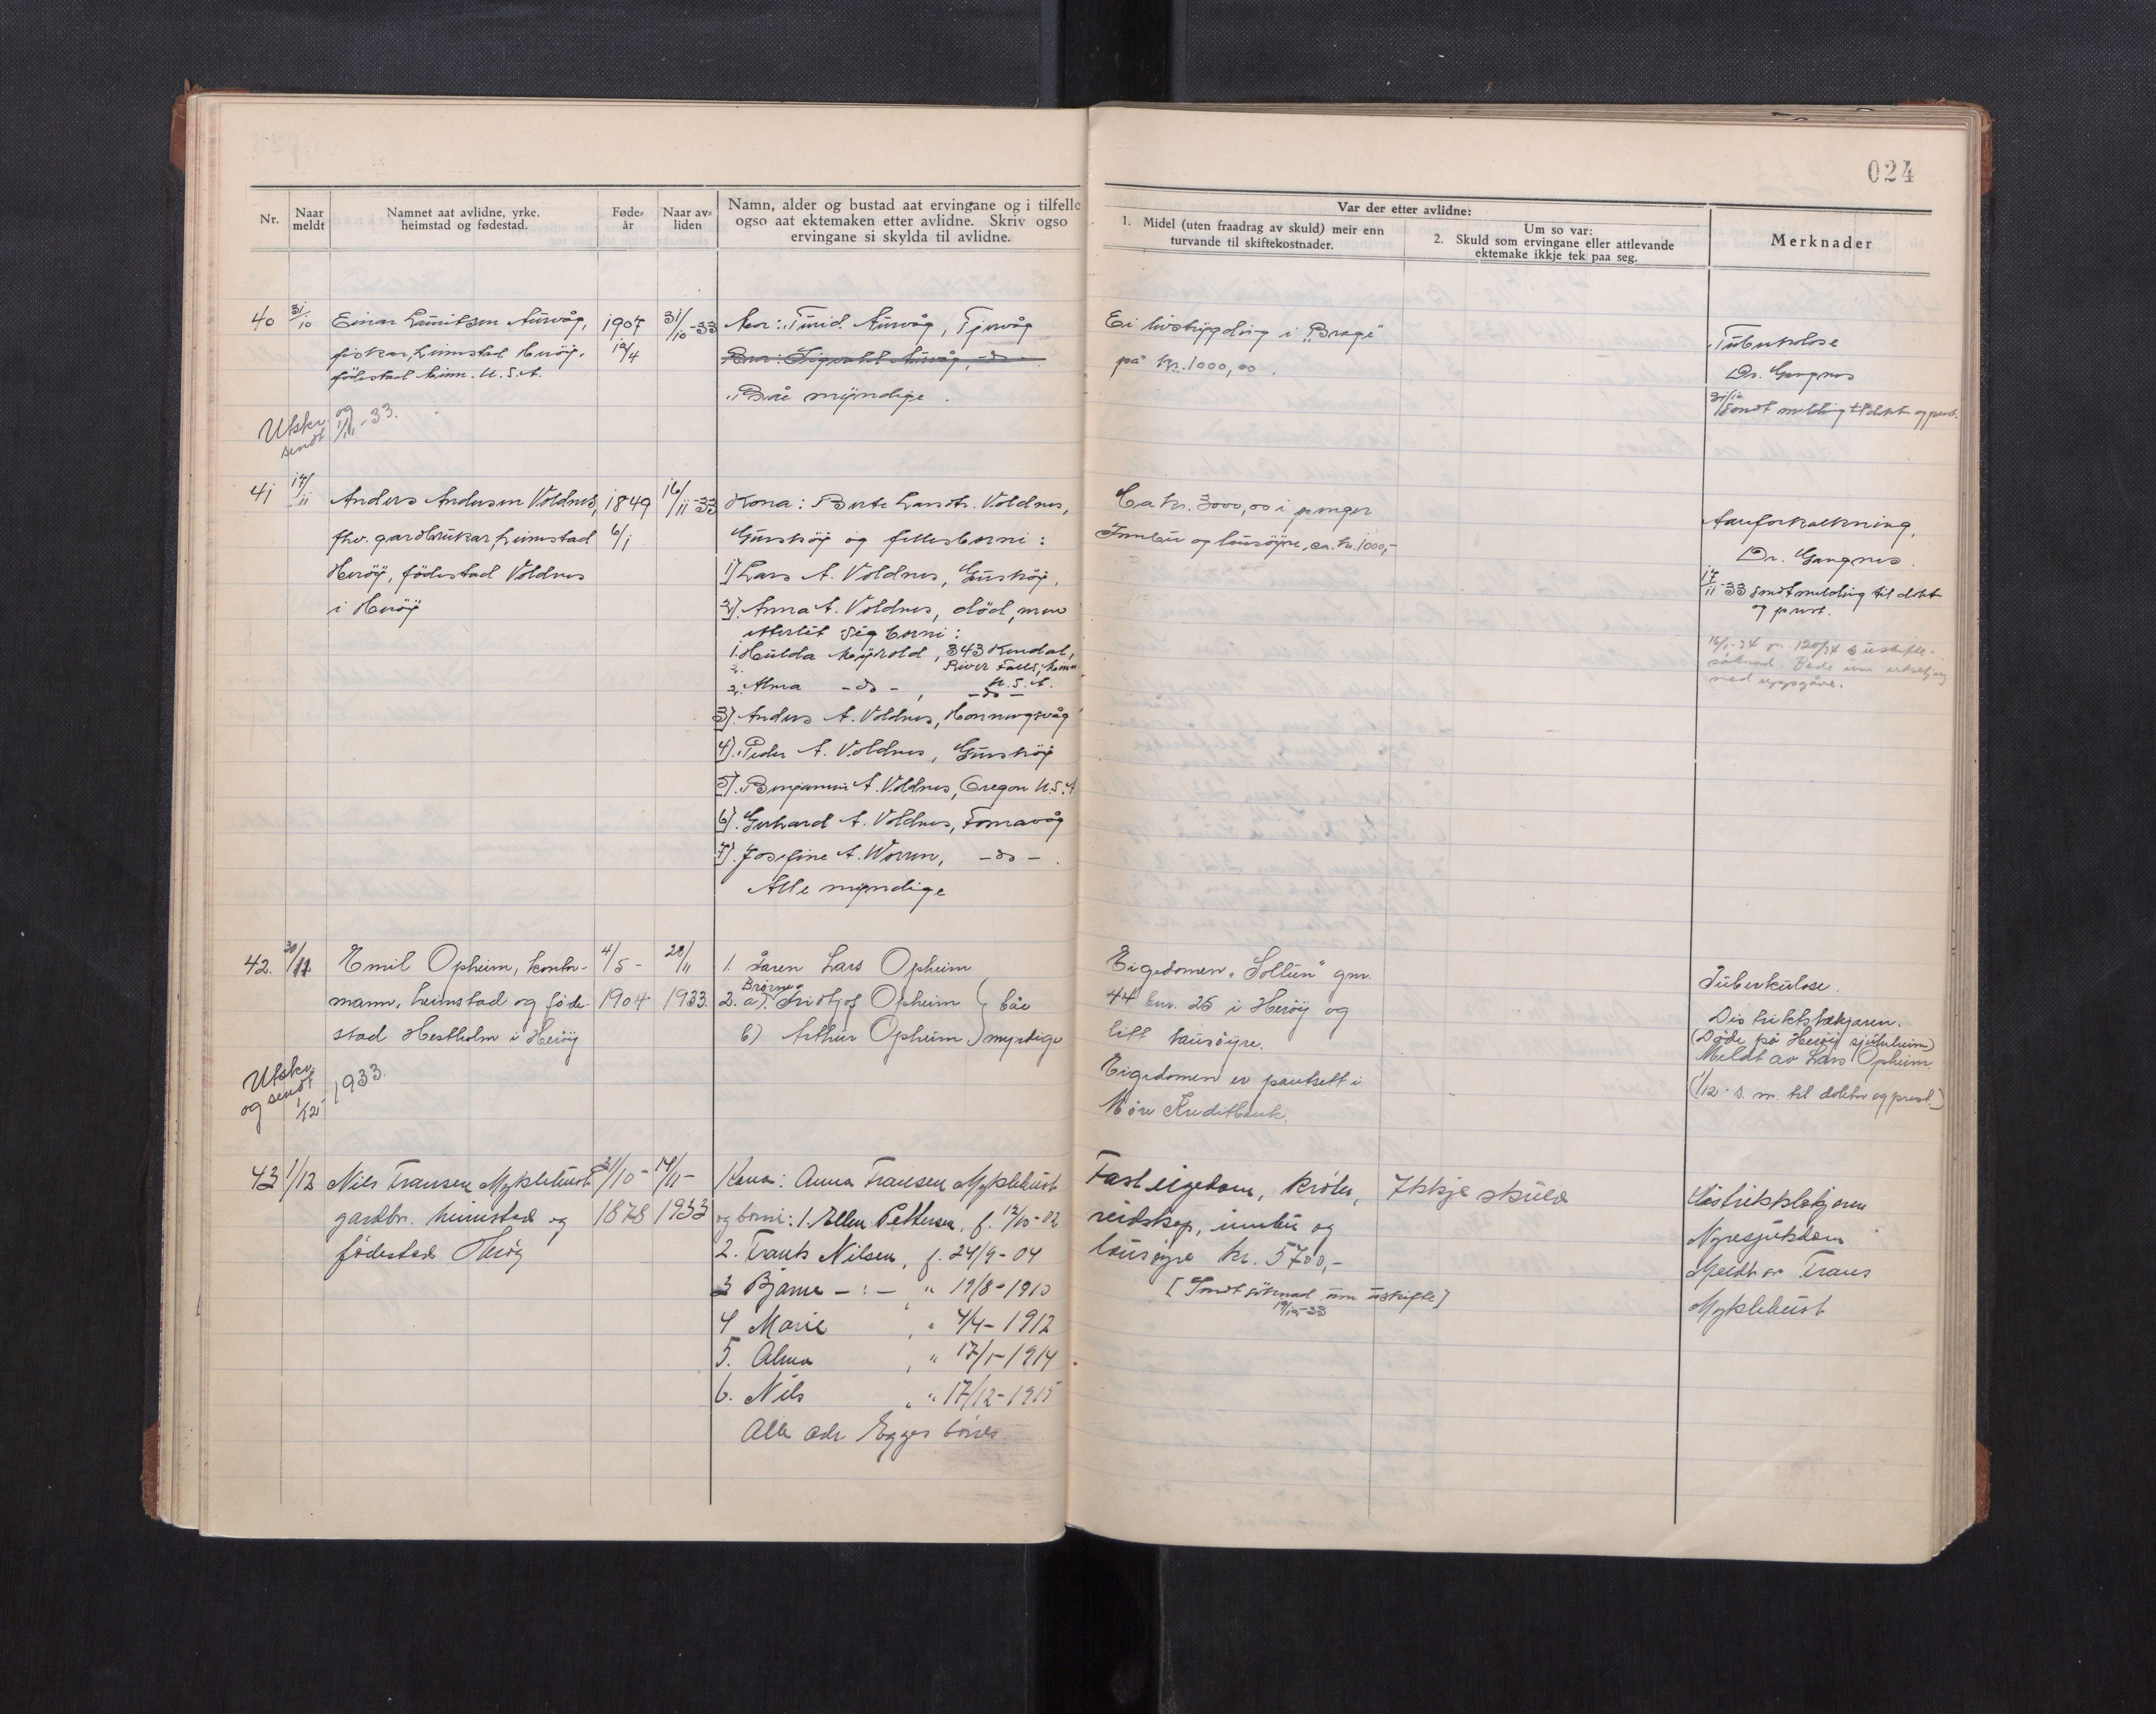 024
Nr.
Naar meldt
Namnet aat avlidne, yrke, heimstad og fødestad.
Føde-år
Naar av-liden
Namn, alder og bustad aat ervingane og i tilfelle
ogso aat ektemaken etter avlidne. Skriv ogso
ervingane si skylda til avlidne.
Var der etter avlidne:
1. Midel (uten fraadrag av skuld) meir enn
turvande til skiftekostnader.
Um so var:
2. Skuld som ervingane eller attlevande
ektemake ikkje tek paa seg.
Merknader
40 31/10 Einar Lauritsen Aurvåg, 1907 31/10-33 Mor: Turid Aurvåg, Tjørvåg
fiskar, heimstad Herøy,
fødestad Minn. U.S.A.
Bror: Sigvald Aurvåg, -do-
Båe myndige.
Ei livstrygding i "Brage"
på kr. 1000,00.
Tuberkolose
Dr. Gangnes
31/10 Sendt melding til dokt. og prest.
Utskr. og
sendt 1/11-33.
41 17/11 Anders Andersen Voldnes, 1849 16/11-33 Kona: Berte Larsdtr. Voldnes,
fhv. gardbrukar, heimstad 6/1 Gurskøy og fellesborni:
Herøy, fødestad Voldnes
i Herøy
1) Lars A. Voldnes, Gurskøy.
2). Anna A. Voldnes, død, men
etterlét sig borni:
1. Hulda Mayrold, 343 Kendal,
River Falls, Minn.
U.S.A.
2. Alma -do-, -do-
3). Anders A. Voldnes, Honningsvåg
4). Peder A. Voldnes, Gurskøy
5). Benjamin A. Voldnes, Oregon U.S.A
6). Gerhard A. Voldnes, Fosnavåg
7). Josefine A. Worren, -do-.
Alle myndige
Ca kr. 3000,00 i pengar
Innbu og lausøyre, ca. kr. 1000,-
Aareforkalkning,
Dr. Gangnes.
17/11-33 sendt melding til dokt.
og prest.
42. 30/11 Emil Opheim, kontor- 4/5- 28/11 1. Faren Lars Opheim
mann, heimstad og føde- 1904 1933. Brørne
2. a). Fridtjof Opheim } båe
stad Hestholm i Herøy b) Arthur Opheim } myndige
Eigedomen "Soltun" gnr.
44 bnr. 25 i Herøy og
litt lausøyre.
Eigedomen er pantsett i
Møre Kreditbank.
Tuberkulose.
Distriktslækjaren.
(Døde på Herøy sjukeheim)
Meldt av Lars Opheim.
(1/12- s. m. til doktor og prest.)
Utskr.
og sendt
1/12 1933.
43 1/12 Nils Fransen Myklebust 31/10- 14/11- Kona: Anna Fransen Myklebust
gardbr. heimstad og 1878 1933 og borni: 1. Ellen Pettersen, f. 12/10-02
fødestad Herøy 2. Frants Nilsen, f. 24/9-04
3 Bjarne -:- " 19/8-1910
4 Marie, " 4/4-1912
5. Alma, " 17/1-1914
6. Nils, " 17/12-1915
Alle adr. Eggesbønes
Fast eigedom, krøter,
reidskap, innbu og
lausøyre kr. 5700,-
[Sendt søknad um uskifte]
19/12-33
Ikkje skuld
Distriktslækjaren
Nyresjukdom
Meldt av Frans
Myklebust